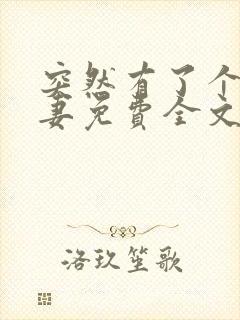 突然有了个
妻免费全文
洛玖笙歌